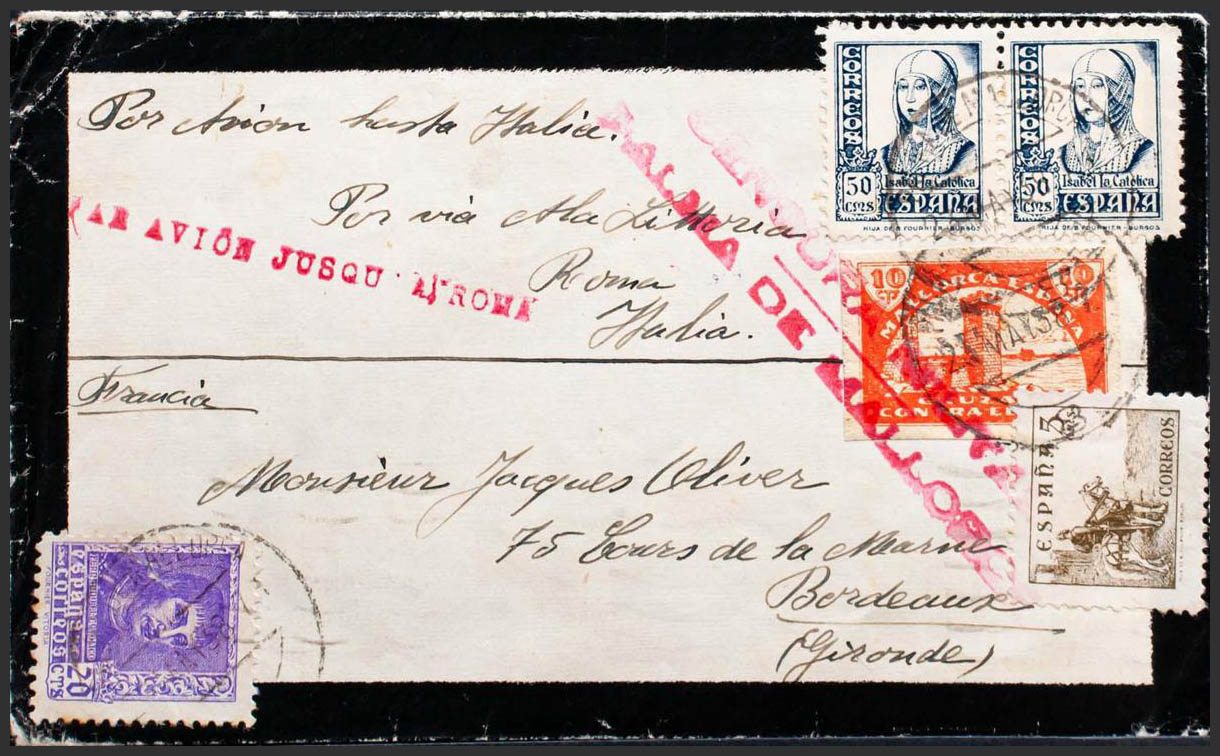 Por Avion hasta Italia.
Por via Ala Littoria
Roma
Italia.
PAR AVIÓN JUSQU'A ROMA
CENSURA MILITAR
PALMA DE MALLORCA
Francia
Monsieur Jacques Oliver
75 Cours de la Marne
Bordeaux
(Gironde)
CORREOS
50 CTS
Isabel la Católica
ESPAÑA
HIJA DE B. FOURNIER - BURGOS
CORREOS
50 CTS
Isabel la Católica
ESPAÑA
HIJA DE B. FOURNIER - BURGOS
10 10
MALLORCA
CONTRA
25 MAY 38
ESPAÑA 5 CTS
CORREOS
ESPAÑA
CORREOS
20 CTS